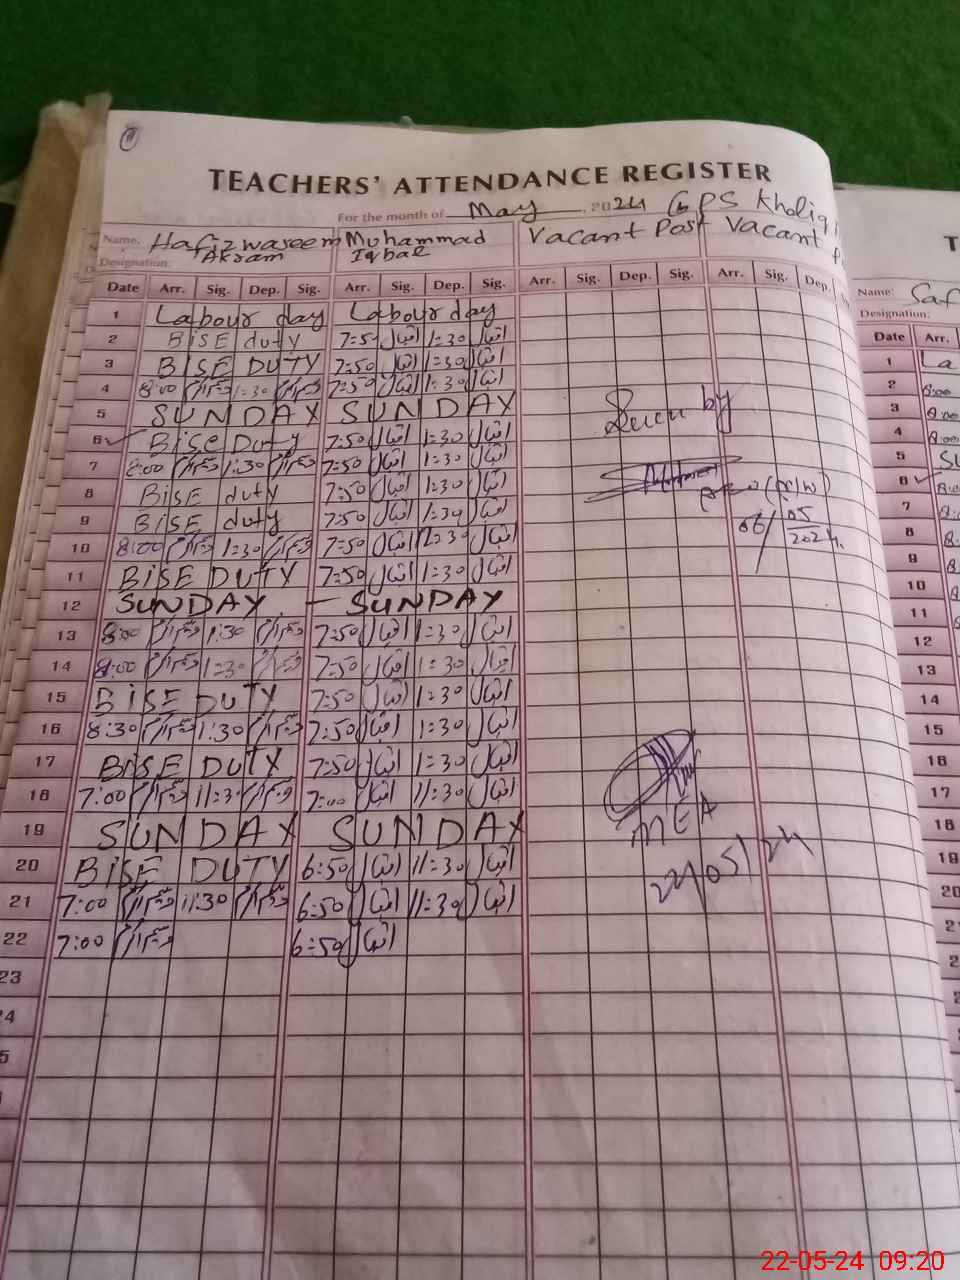 TEACHERS' ATTENDANCE REGISTER
For the month of May, 2024 GPS Kholiq
Name: Hafiz waseem Akram Muhammad Iqbal Vacant Post Vacant
Designation:
Date Arr. Sig. Dep. Sig. Arr. Sig. Dep. Sig. Arr. Sig. Dep. Sig. Arr. Sig. Dep.
1 Labour day Labour day
2 BISE duty 7:50 اقبال 1:30 اقبال
3 BISE DUTY 7:50 اقبال 1:30 اقبال
4 8:00 1:30 7:50 اقبال 1:30 اقبال
5 SUNDAY SUNDAY
6 Bise Duty 7:50 اقبال 1:30 اقبال
7 8:00 1:30 7:50 اقبال 1:30 اقبال
8 BISE duty 7:50 اقبال 1:30 اقبال
9 BISE duty 7:50 اقبال 1:30 اقبال
10 8:00 1:30 7:50 اقبال 1:30 اقبال
11 BISE DUTY 7:50 اقبال 1:30 اقبال
12 SUNDAY - SUNDAY
13 8:00 1:30 7:50 اقبال 1:30 اقبال
14 8:00 1:30 7:50 اقبال 1:30 اقبال
15 BISE DUTY 7:50 اقبال 1:30 اقبال
16 8:30 1:30 7:50 اقبال 1:30 اقبال
17 BISE DUTY 7:50 اقبال 1:30 اقبال
18 7:00 11:30 7:00 اقبال 11:30 اقبال
19 SUNDAY SUNDAY
20 BISE DUTY 6:50 اقبال 11:30 اقبال
21 7:00 11:30 6:50 اقبال 11:30 اقبال
22 7:00 6:50 اقبال
23
Seen by
06/05/2024.
MEA
22/05/24
Name: Saf
Designation:
Date Arr.
1 La
2 8:00
3 8:00
4 8:00
5 Su
6 8:00
7 8:
8 8
9 8
10
11
12
13
14
15
16
17
18
19
20
22-05-24 09:20